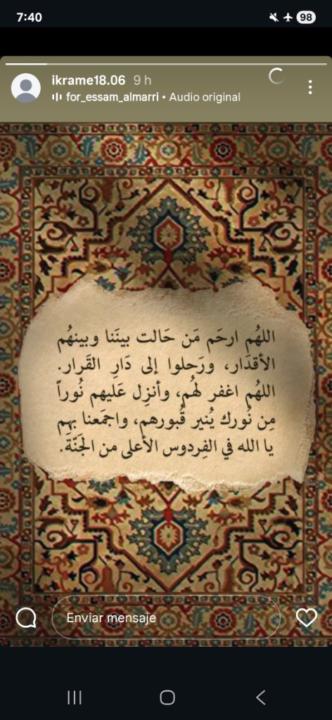 7:40
98
ikrame18.06 9 h
for_essam_almarri • Audio original
اللهُم ارحَم مَن حَالت بينَنا وبينهُم
الأقدَار، ورَحلوا إلى دَارِ القَرار.
اللهُم اغفر لهُم، وأنزِل عَليهم نُوراً
مِن نُورك يُنير قُبورهم، واجمَعنا بِهم
يا الله في الفِردوس الأعلى من الجَنَّة.
Enviar mensaje